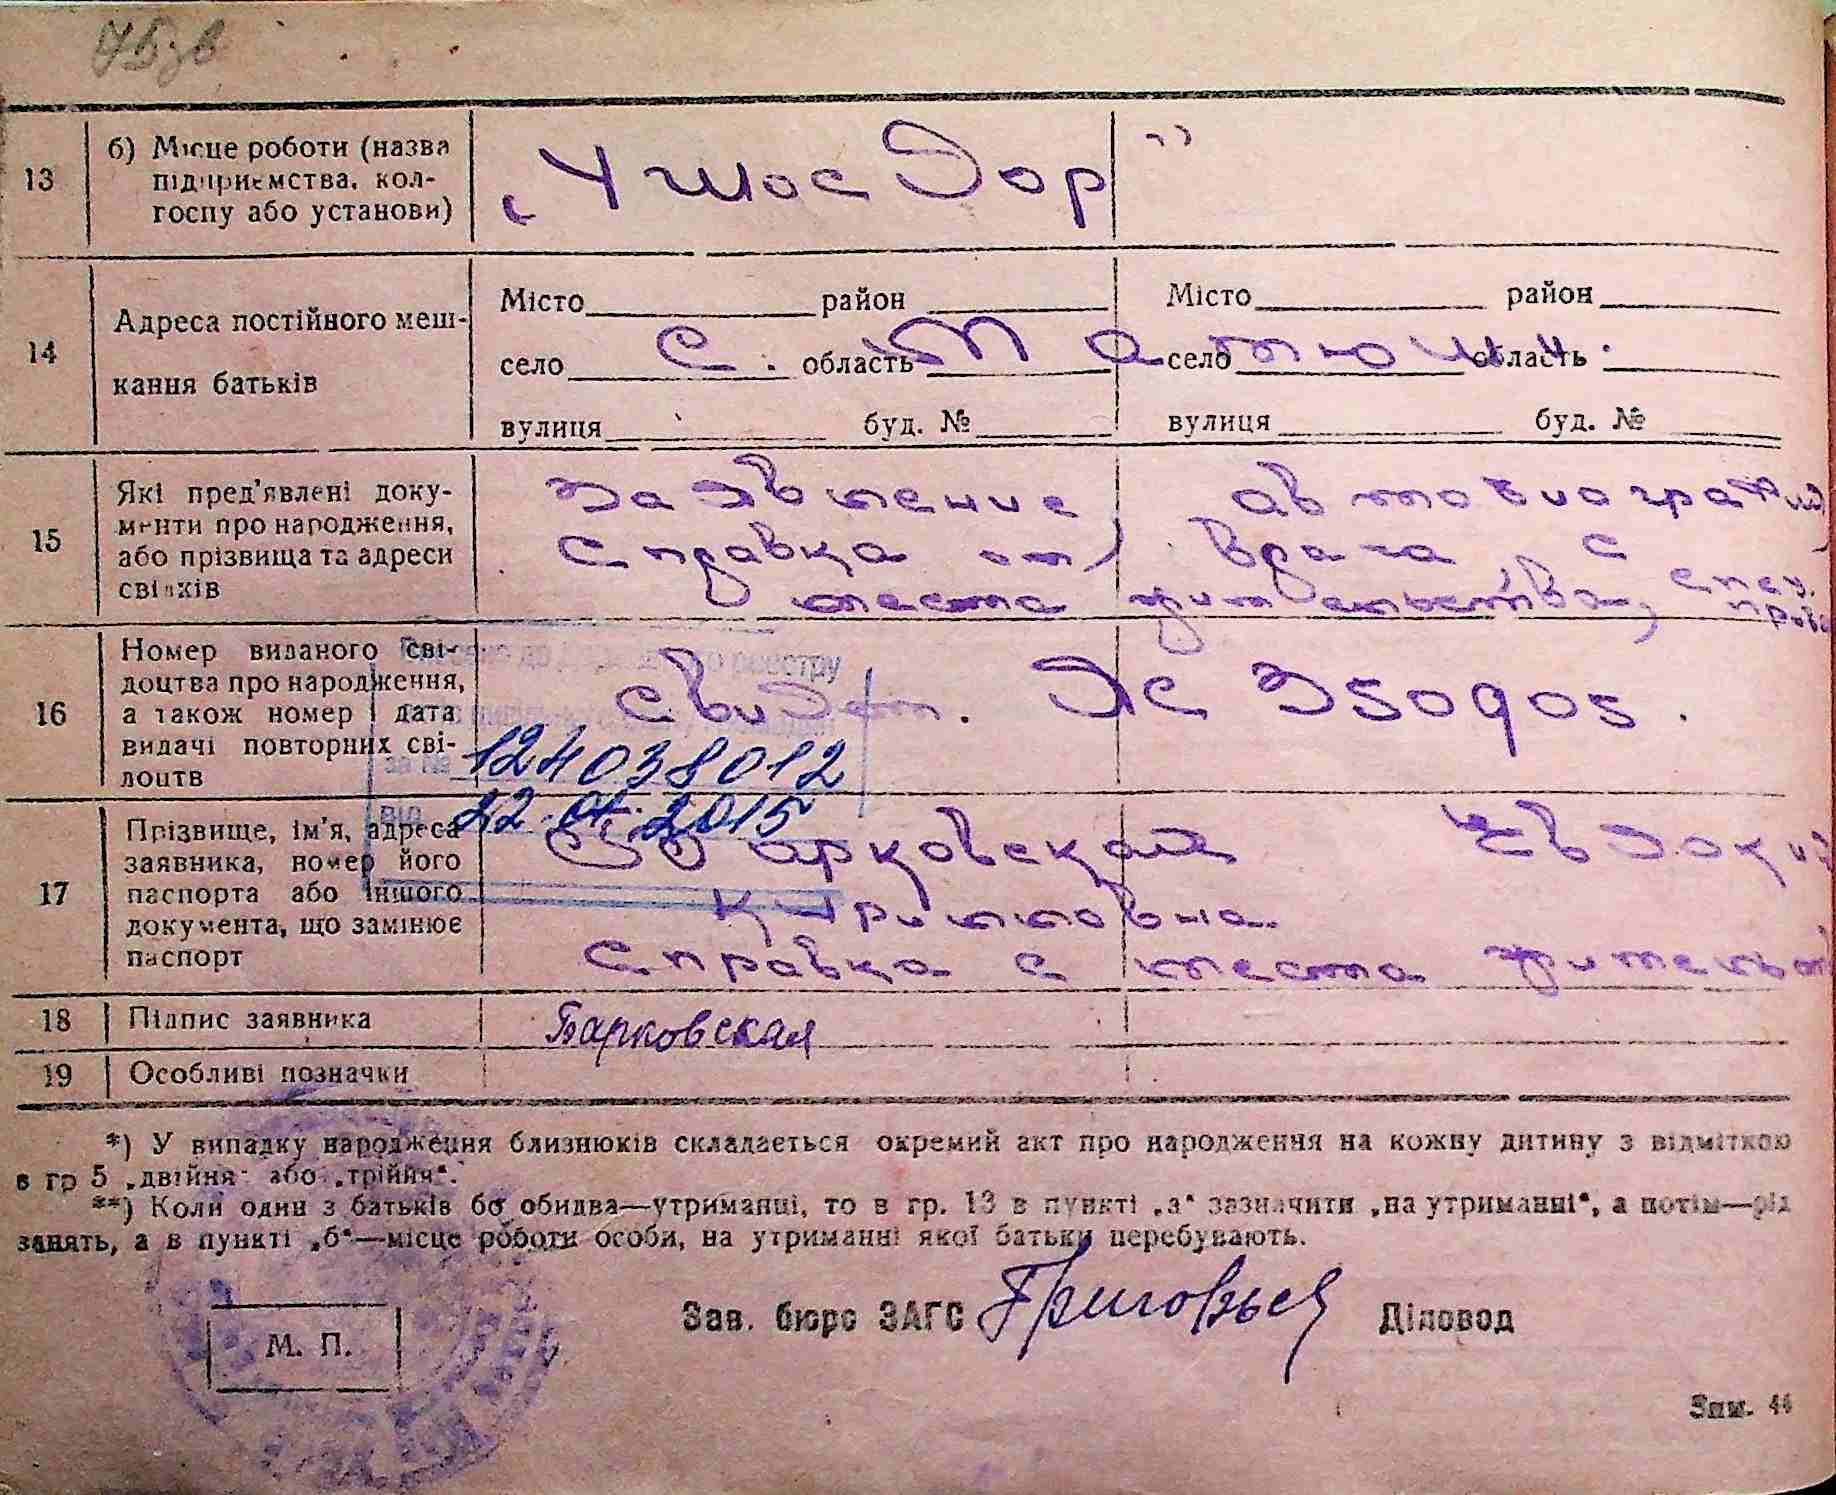 13
б) Місце роботи (назва
підприємства, кол-
госпу або установи)
„Ушосдор"
14
Адреса постійного меш-
кання батьків
Місто район
село область
вулиця буд. №
Місто район
село область
вулиця буд. №
с.
15
Які пред'явлені доку-
менти про народження,
або прізвища та адреси
свідків
Заявление автобиография
Справка от врача, с
места жительства,
16
Номер виданого сві-
доцтва про народження,
а також номер і дата
видачі повторних сві-
доцтв
свидет. ЖС 350905.
до реєстру
за №
124038012
від 22.01.2015
17
Прізвище, ім'я, адреса
заявника, номер його
паспорта або іншого
документа, що замінює
паспорт
Барковская Евдокия
Кирилловна.
Справка с места жительст
18
Підпис заявника
Барковская
19
Особливі позначки
*) У випадку народження близнюків складається окремий акт про народження на кожну дитину з відміткою
в гр 5 „двійня" або „трійня".
**) Коли один з батьків бо обидва—утриманці, то в гр. 13 в пункті „а" зазначити „на утриманні", а потім—рід
занять, а в пункті „б"—місце роботи особи, на утриманні якої батьки перебувають.
М. П.
Зав. бюро ЗАГС Григорьев Діловод
Зам. 44